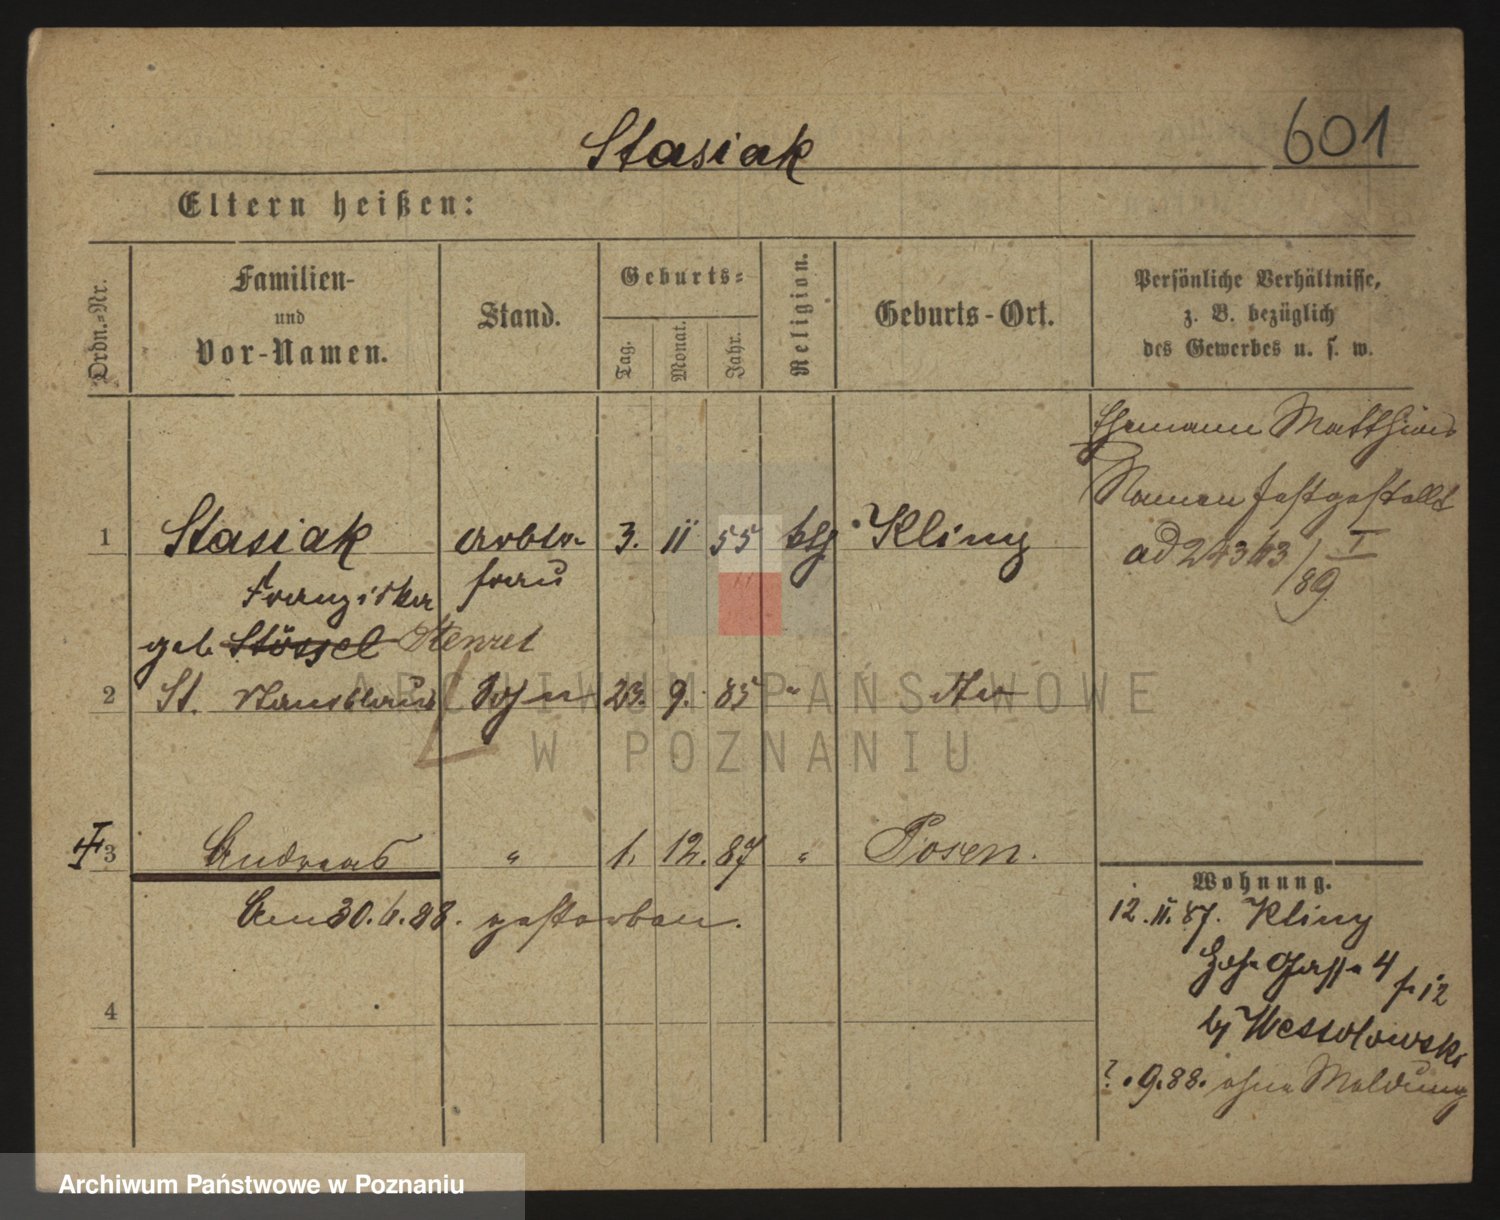 Stasiak
601
Eltern heißen:
Ordn.-Nr.
Familien-
und
Vor-Namen.
Stand.
Geburts-
Tag.
Monat.
Jahr.
Religion.
Geburts-Ort.
Persönliche Verhältnisse,
z. B. bezüglich
des Gewerbes u. s. w.
Ehemann Matthias
Namen festgestellt
ad 24343/I
89
1 Stasiak Arbtr- 3. 11 55 kth Kliny
Franziska frau
geb. Stössel Stenzel
2 St. Stanislaus Sohn 23. 9. 85 "
ARCHIWUM PAŃSTWOWE
W POZNANIU
3 Andreas " 1. 12. 87 " Posen.
Am 30. 6. 88. gestorben.
4
Wohnung.
12. 11. 87. Kliny
Gasse 4
12
by Wessolowski
?. 9. 88. ohne Meldung
Archiwum Państwowe w Poznaniu